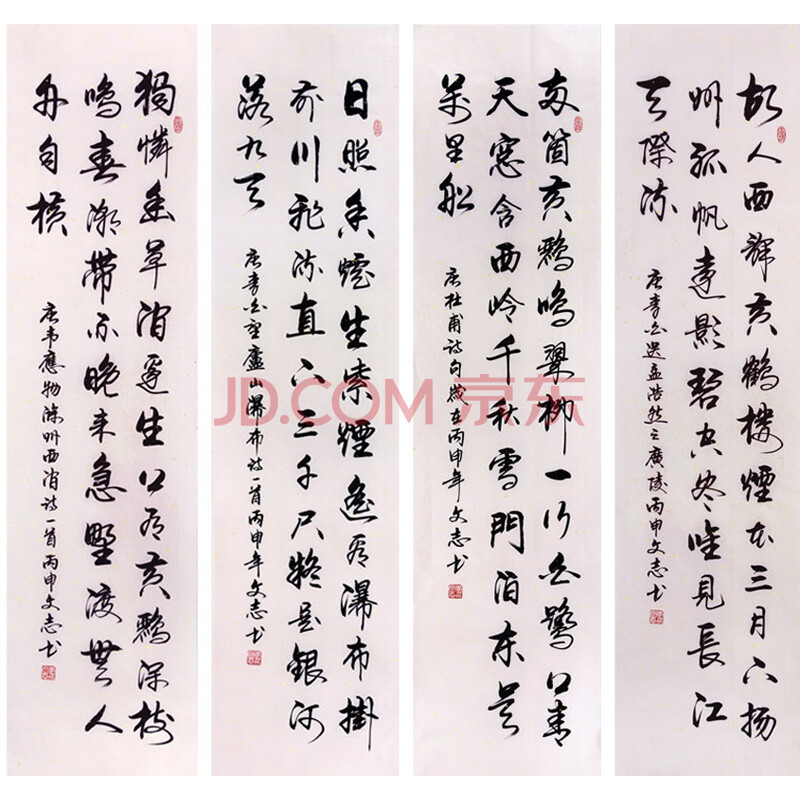 故人西辞黄鶴樓煙花三月下扬
州孤帆遠影碧空尽唯見長江
天際流
唐李白送孟浩然之廣陵丙申文志书
两箇黄鸝鳴翠柳一行白鹭上青
天窓含西岭千秋雪門泊东吴
萬里船
唐杜甫诗句歲在丙申年文志书
日照香爐生紫煙遥看瀑布掛
前川飛流直下三千尺疑是銀河
落九天
唐李白望廬山瀑布诗一首丙申年文志书
獨憐幽草澗邊生上有黄鸝深樹
鳴春潮帶雨晚来急野渡無人
舟自横
唐韦應物滁州西涧诗一首丙申文志书
JD.COM 京东